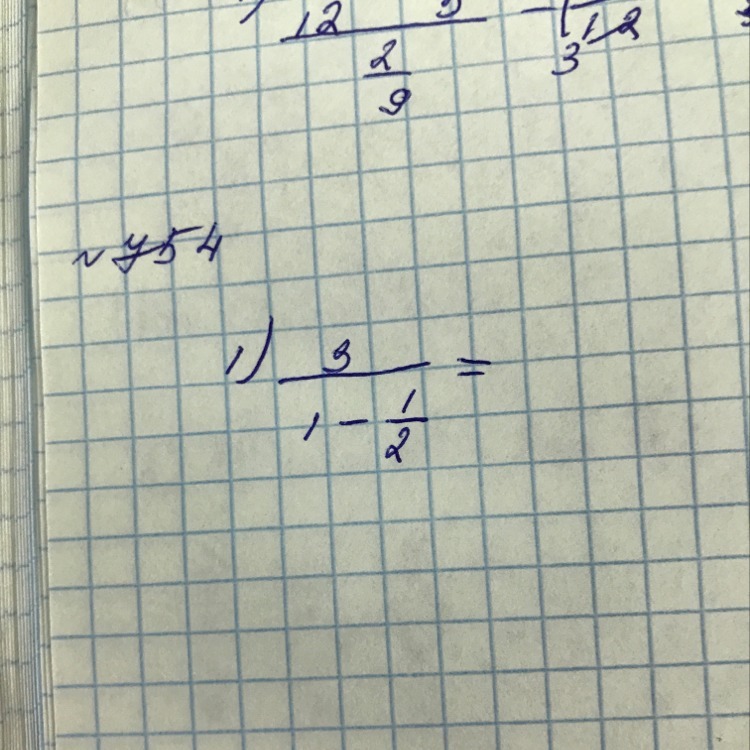 12
2
9
3 1 2
754
1) 3 =
1 - 1
2